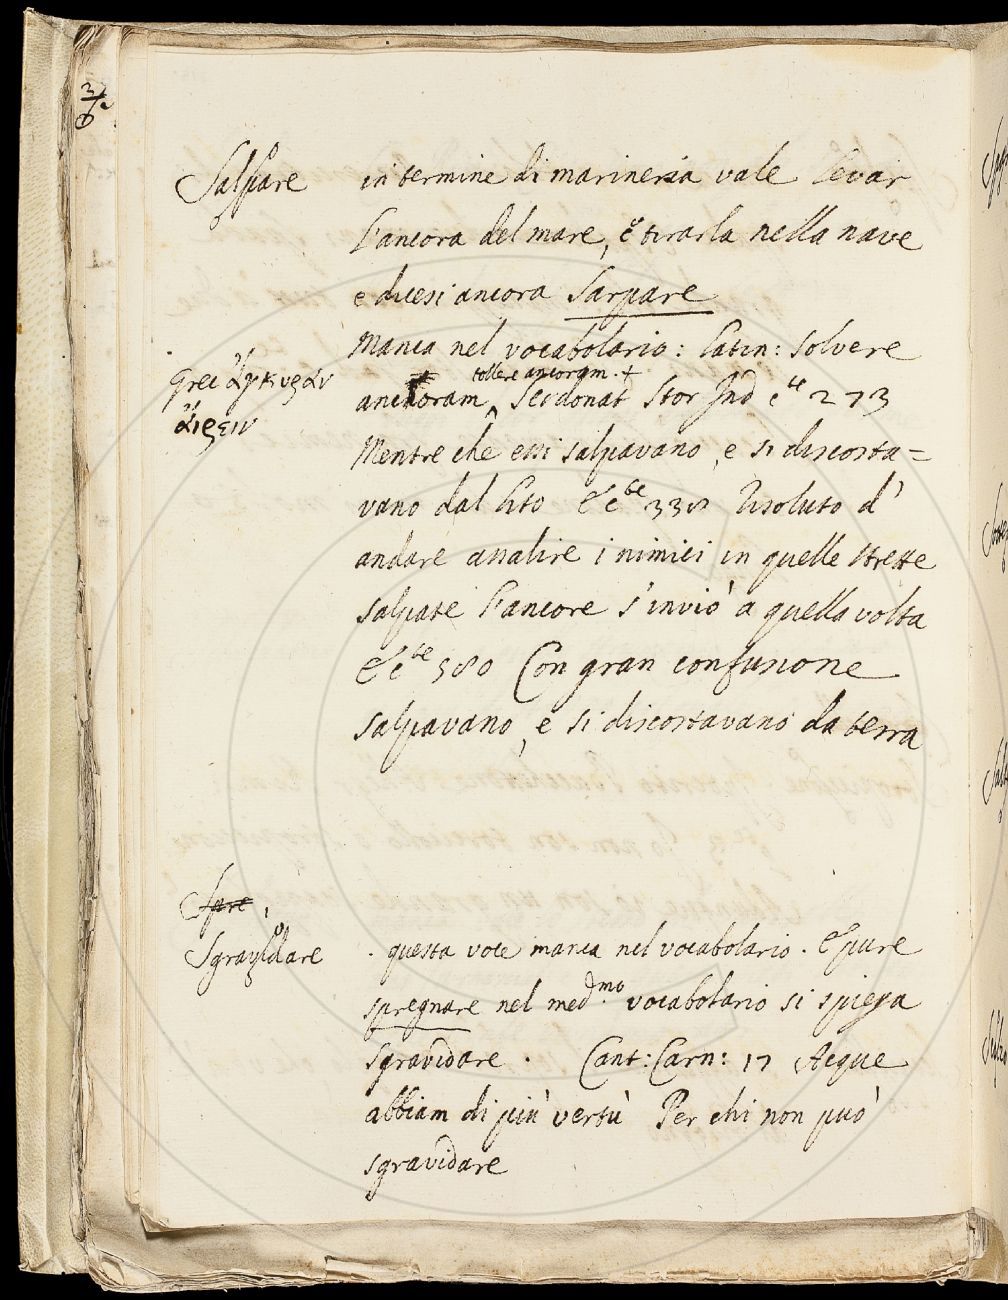 Salpare in termine di marineria vale levar
l'ancora del mare, e tirarla nella nave
e dicesi ancora Sarpare
Manca nel vocabolario: latin: solvere
tollere ancoram +
ancoram, Serdonat Stor Ind c te 273
Grec ἄγκυραν
ἄιρειν
Mentre che essi salpavano, e si discosta=
vano dal lito & c te 338 Risoluto d'
andare assalire i nimici in quelle strette
salpate l'ancore s'inviò a quella volta
& c te 580 Con gran confusione
salpavano, e si discostavano da terra
Spre
Sgravidare . questa voce manca nel vocabolario. E pure
spregnare nel med.mo vocabolario si spiega
sgravidare . Cant: Carn: 17 Acque
abbiam di più vertù Per chi non può
sgravidare